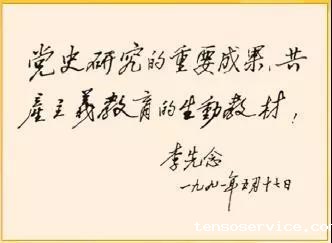 党史研究的重要成果、共
產主義教育的生動教材！
李先念
一九九一年五月十七日
tensoservice.com